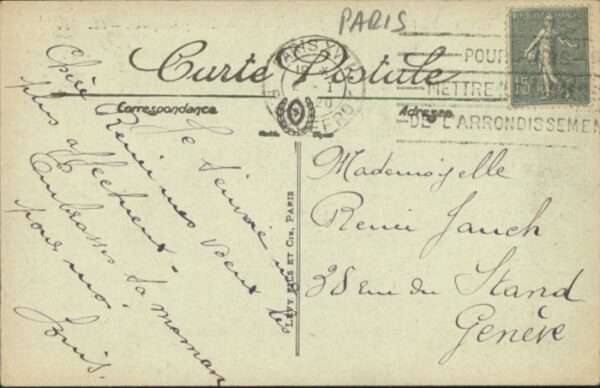 PARIS
Carte Postale
Correspondance
Adresse
PARIS XV
POUR
METTRE
DE L'ARRONDISSEMEN
Chère Reni
Je t'envoie mes
vœux les
plus affectueux.
Embrasses ta maman
pour moi.
Louis.
LEVY FILS ET CIE, PARIS
Mademoiselle
Reni Jauch
38 rue du Stand
Genève